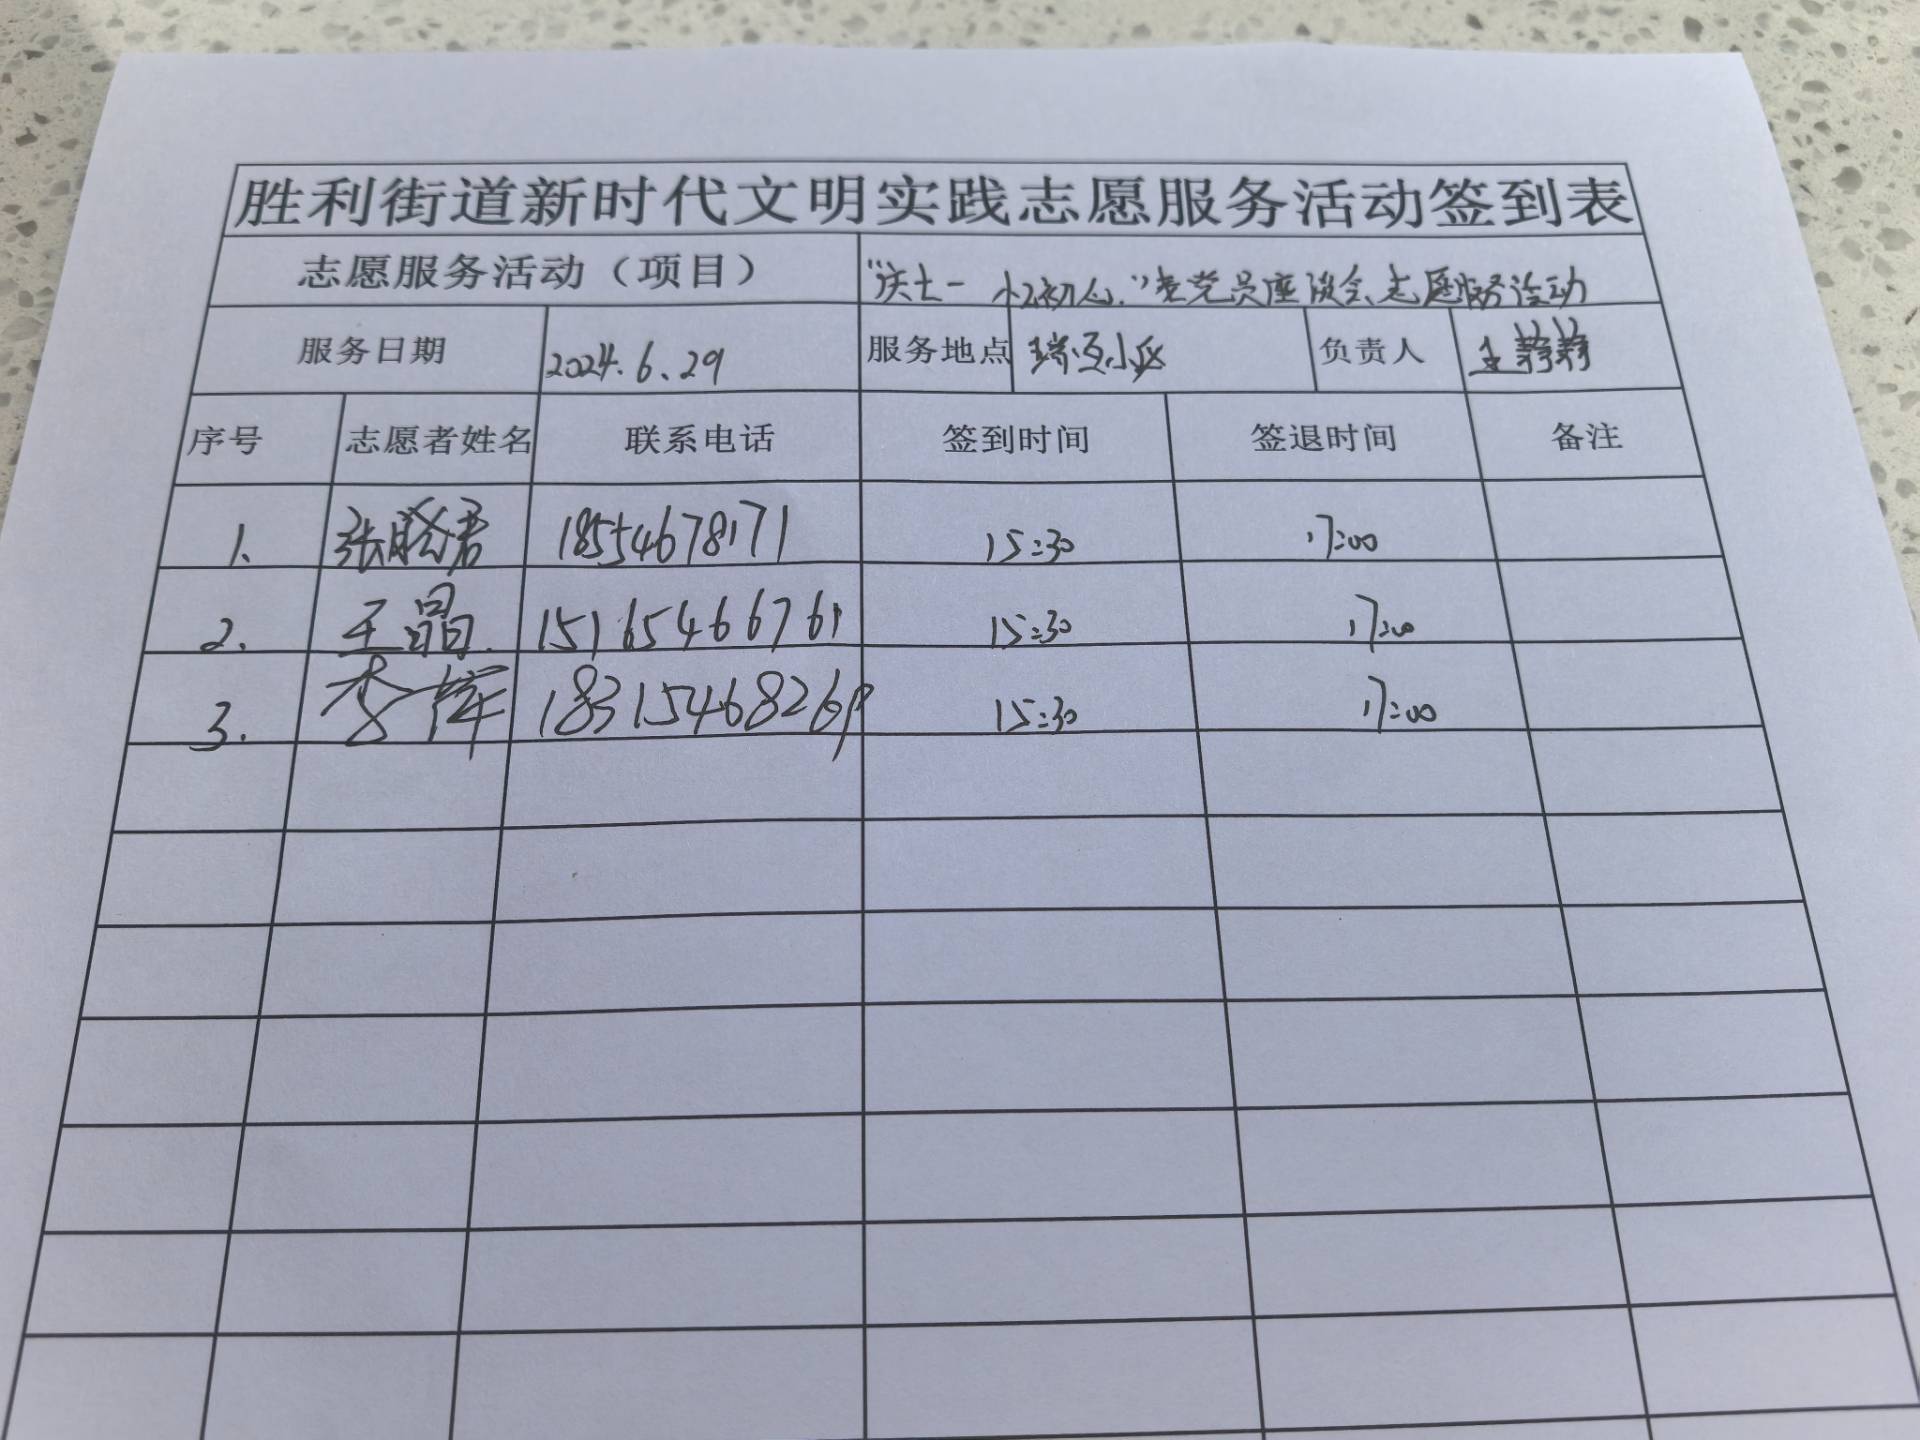 胜利街道新时代文明实践志愿服务活动签到表
志愿服务活动（项目） “庆七一 忆初心”老党员座谈会志愿服务活动
服务日期 2024.6.29 服务地点 小区 负责人 王静静
序号 志愿者姓名 联系电话 签到时间 签退时间 备注
1. 张晓君 18554678171 15:30 17:00
2. 王晶 15165466761 15:30 17:00
3. 李 1831546826 15:30 17:00